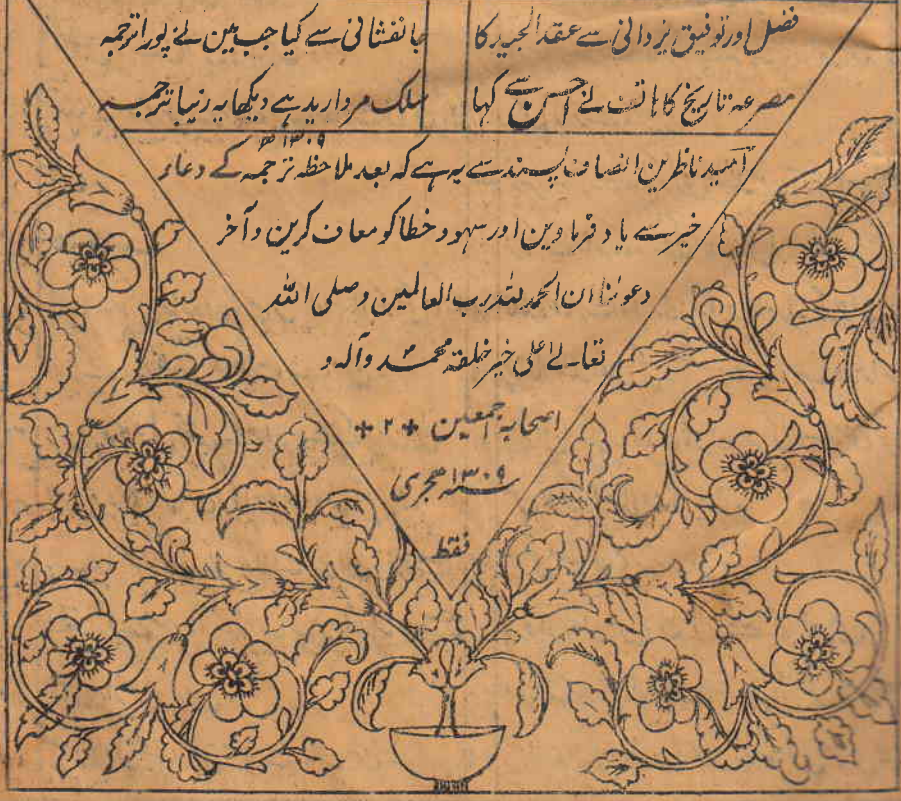 فضل اور توفیق یزدانی سے عقد الجید کا جانفشانی سے کیا جب مین نے پورا ترجمہ
مصرعہ تاریخ کا ہاتف نے احسن سے کہا سلک مروارید ہے دیکھا یہ زیبا ترجمہ
۱۳۰۹ھ
امید ناظرین انصاف پسند سے یہ ہے کہ بعد ملاحظہ ترجمہ کے دعاء
خیر سے یاد فرماوین اور سہو و خطا کو معاف کرین و آخر
دعوٰنا ان الحمد للہ رب العالمین و صلی اللہ
تعالےٰ علی خیر خلقہ محمد و آلہ و
اصحابہ اجمعین ۲
۱۳۰۹ ہجری
فقط